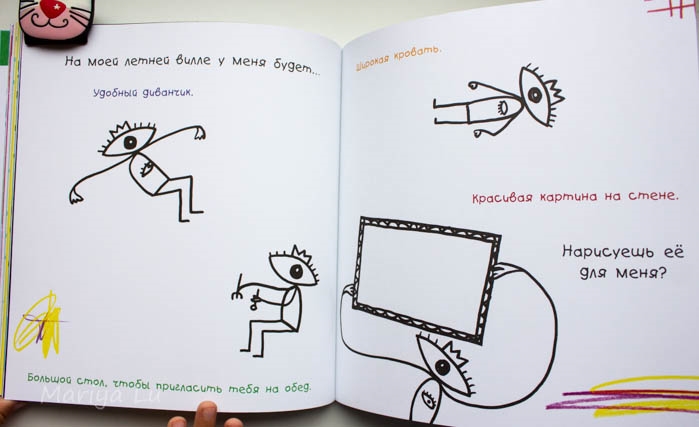 На моей летней вилле у меня будет...
Удобный диванчик.
Большой стол, чтобы пригласить тебя на обед.
Широкая кровать.
Красивая картина на стене.
Нарисуешь её
для меня?
Mariya Lu